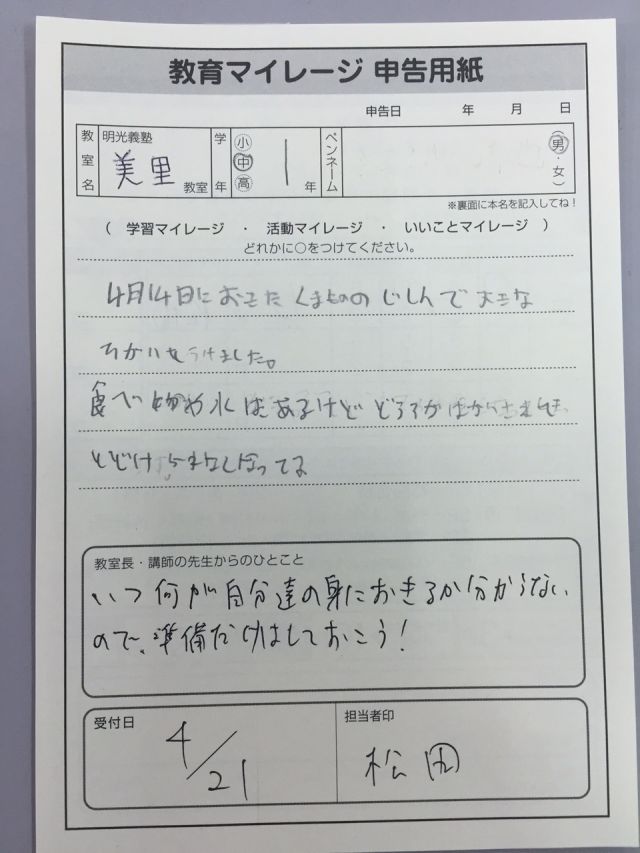 教育マイレージ 申告用紙
申告日 年 月 日
教室名 明光義塾 美里 教室 学年 小 中 高 1 年 ペンネーム (男・女)
※裏面に本名を記入してね!
( 学習マイレージ ・ 活動マイレージ ・ いいことマイレージ )
どれかに○をつけてください。
4月14日におきた くまもとの じしんで 大きな
うけました。
食べ物や水はあるけど どうろが
とどけ なってる
教室長・講師の先生からのひとこと
いつ何が自分達の身におきるか分からない
ので、準備だけはしておこう!
受付日 4/21
担当者印 松田